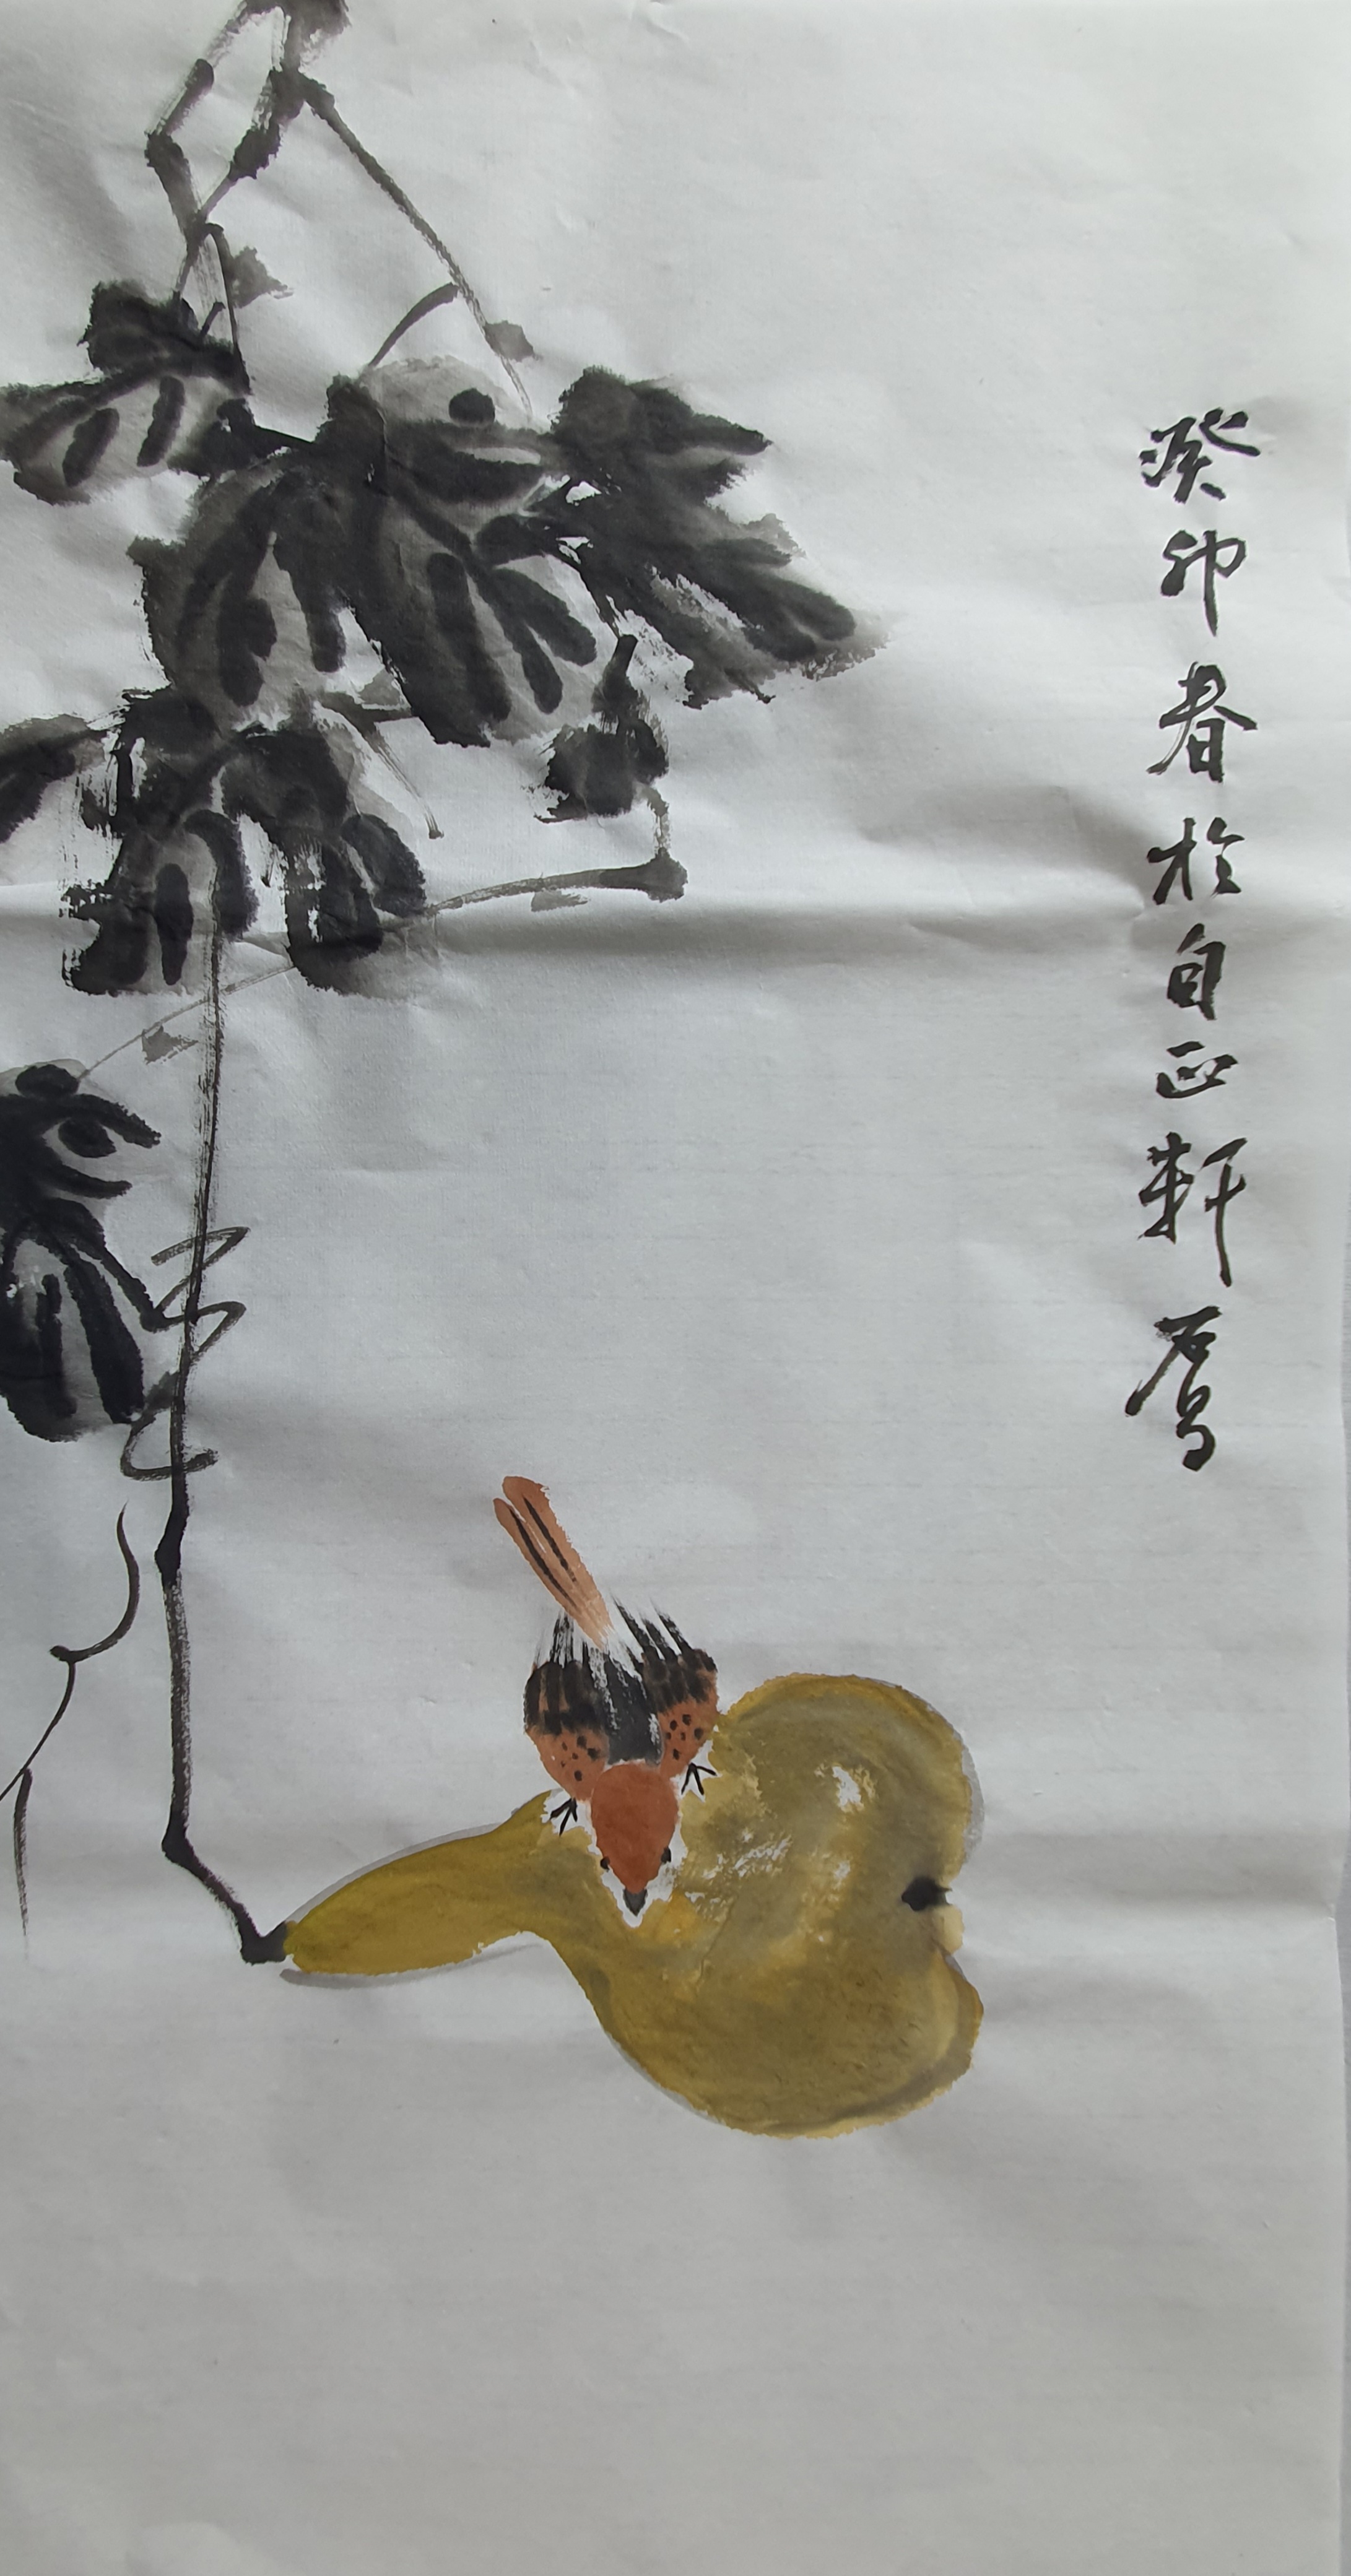 癸卯春於自正軒